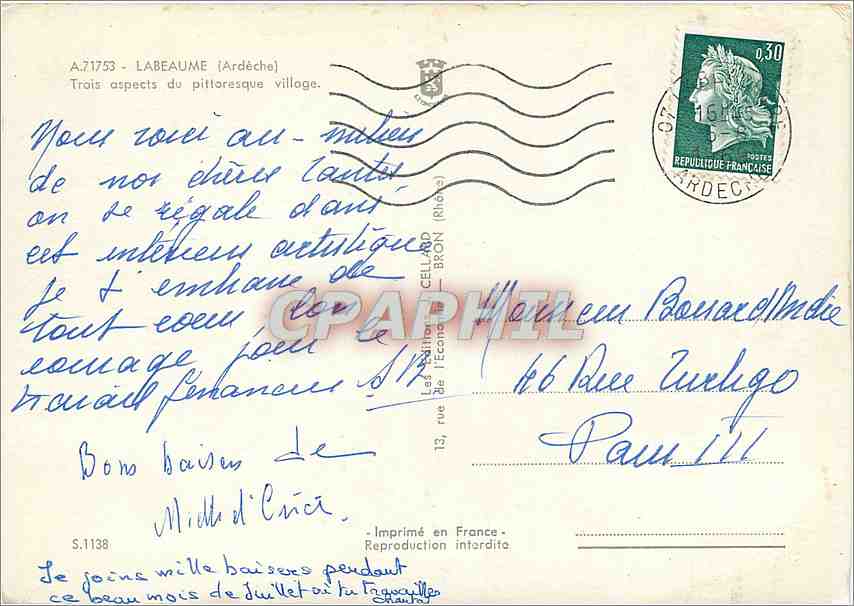 A.71753 - LABEAUME (Ardèche)
Trois aspects du pittoresque village.
Nous voici au-milieu
de nos chères tantes
on se régale dans
cet intérieur artistique
Je t'embrasse de
tout cœur bon
courage pour le
travail
Bons baisers de
Je joins mille baisers pendant
ce beau mois de Juillet où tu travailles
Chantal
S.1138
Les Editions CELLARD
13, rue de l'Economie — BRON (Rhône)
- Imprimé en France -
Reproduction interdite
0,30
POSTES
REPUBLIQUE FRANÇAISE
07
ARDECHE
Monsieur Bossard André
46 Rue Turbigo
Paris III
CPAPHIL